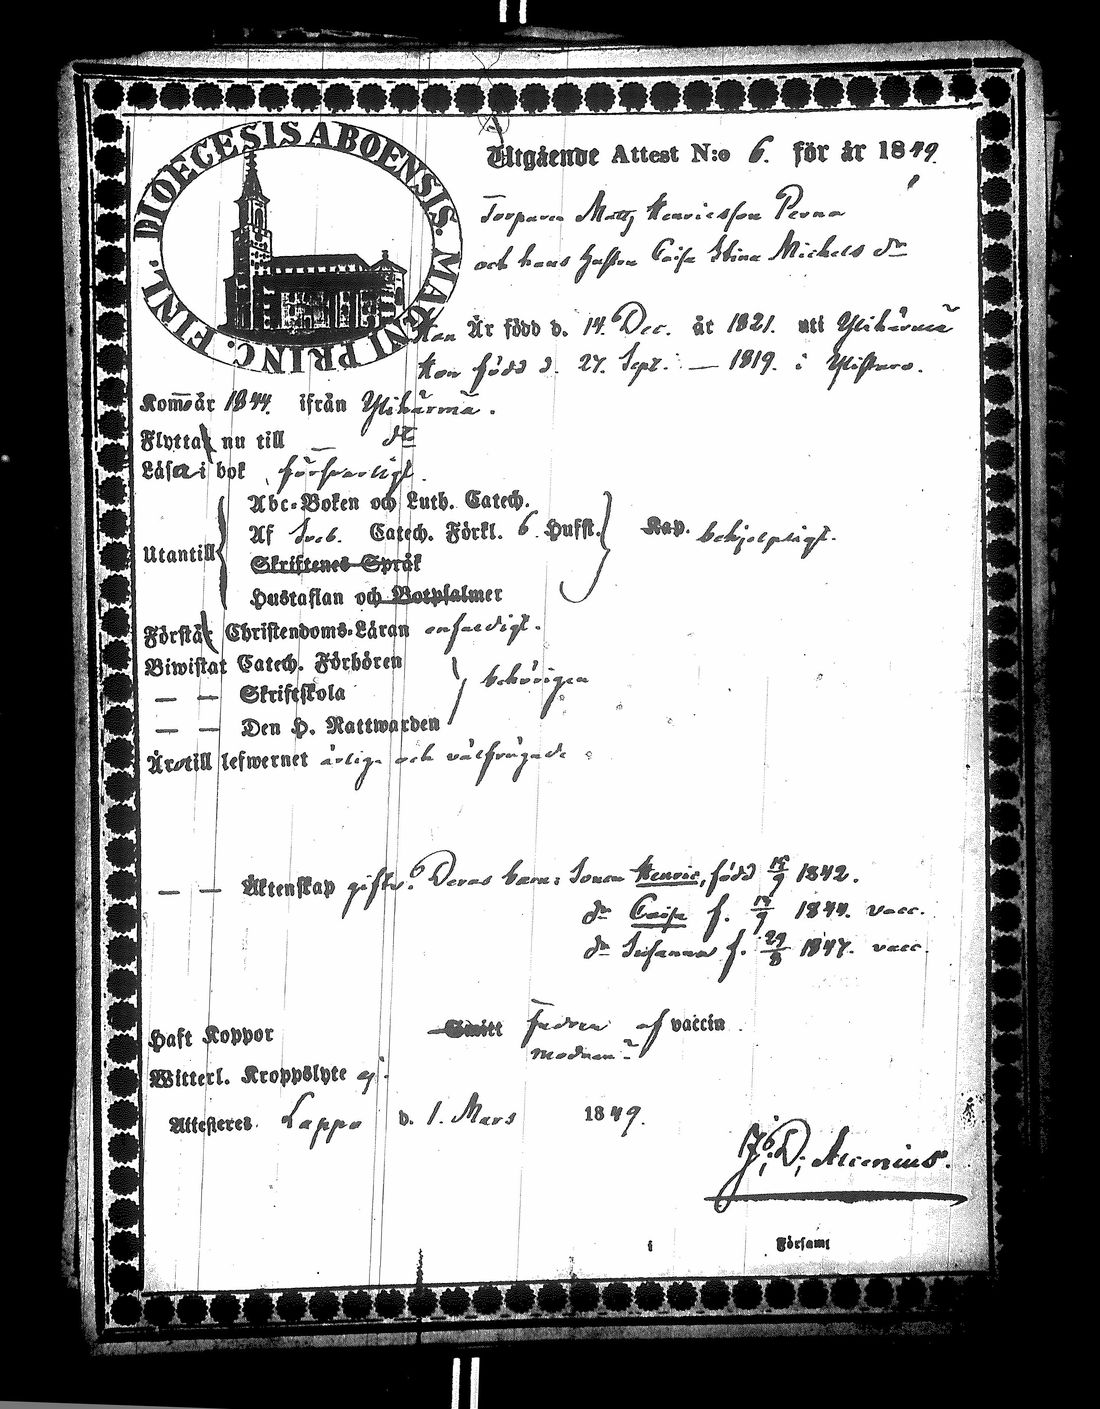 DIOECESIS ABOENSIS. MAGNI PRINC. FINL.
Utgående Attest N:o 6. för år 1849.
Torparen Matts Henricsson Perna
och hans hustru Caisa Stina Michels dr
Han Är född d. 14. Dec. år 1821. uti Ylihärmä
Hon född d. 27. Sept. — 1819. i Ylistaro.
Kom år 1844. ifrån Ylihärmä.
Flytta nu till — do
Läsa i bok försvarligt.
Utantill
Abc-Boken och Luth. Catech.
Af Sveb. Catech. Förkl. 6 Hufst. Kap. behjelpligt.
Skriftenes Språk
Hustaflan och Botpsalmer
Förstå Christendoms-Läran enfaldigt.
Biwistat Catech. Förhören
— — Skriftskola behörigen
— — Den H. Nattwarden
Äro till lefwernet ärliga och välfrägade
— — Äktenskap gifte. Deras barn: Sonen Henric, född 15/9 1842.
dr Caisa f. 14/9 1844. vacc.
dr Susanna f. 29/8 1847. vacc.
Haft Koppor Smitt fadren af vaccin
modren
Witterl. Kroppslyte ej.
Attesteres Lappo d. 1. Mars 1849.
J. D. Alcenius.
i Församl